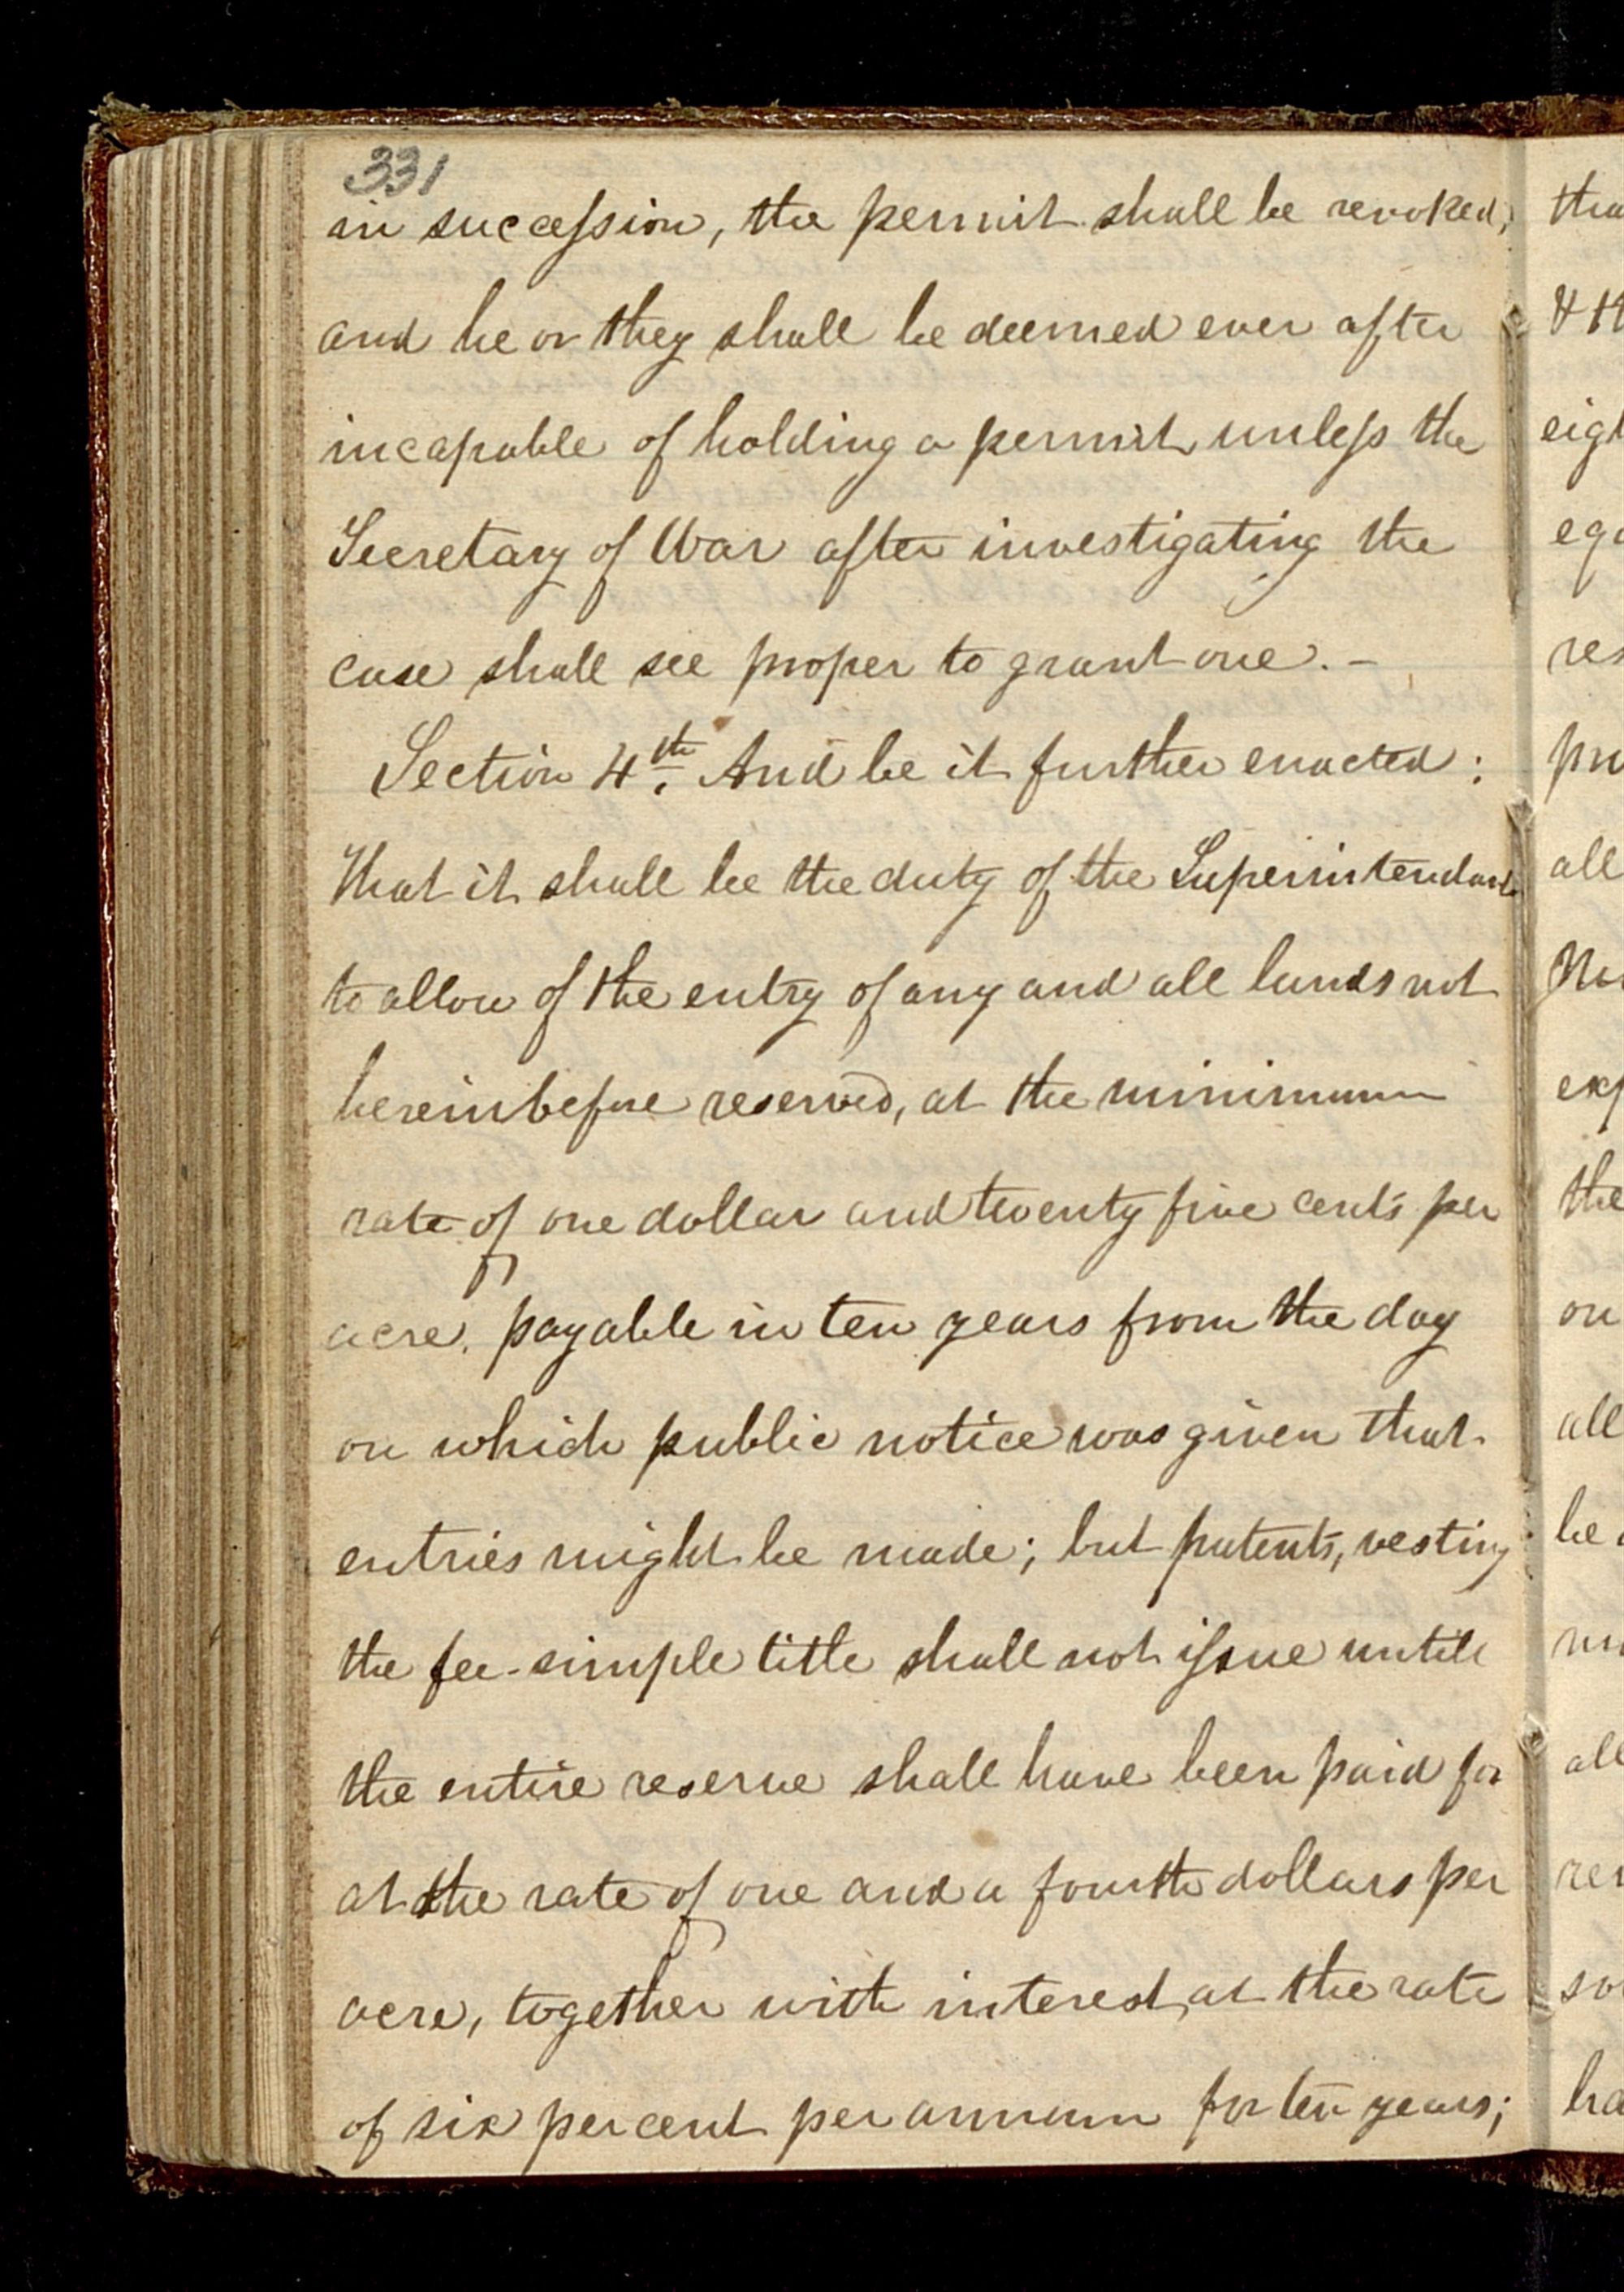 331
in succession, the permit shall be revoked;
and he or they shall be deemed ever after
incapable of holding a permit unless the
Secretary of War after investigating the
case shall see proper to grant one. –
Section 4th. And be it further enacted:
That it shall be the duty of the Superintendant
to allow of the entry of any and all lands not
hereinbefore reserved, at the minimum
rate of one dollar and twenty five cents per
acre, payable in ten years from the day
on which public notice was given that
entries might be made; but patents, vesting
the fee-simple title shall not issue untill
the entire reserve shall have been paid for
at the rate of one and a fourth dollars per
acre, together with interest, at the rate
of six per cent per annum for ten years;